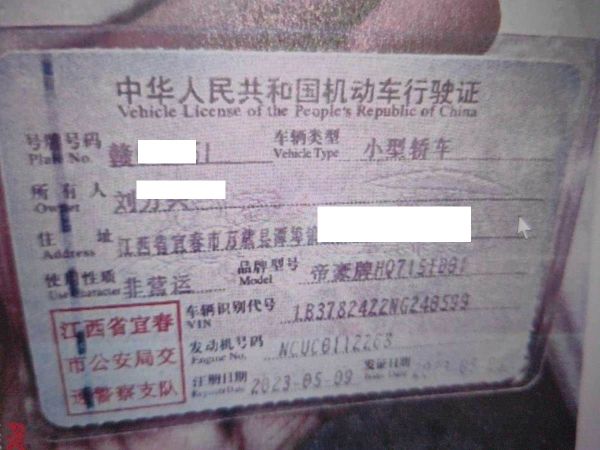 中华人民共和国机动车行驶证
Vehicle License of the People's Republic of China
号牌号码 赣 车辆类型 小型轿车
Plate No. Vehicle Type
所有人 刘
Owner
住址 江西省宜春市万载县潭埠镇
Address
使用性质 非营运 品牌型号 帝豪牌HQ7151DB1
Use Character Model
江西省宜春市公安局交通警察支队
车辆识别代号 LB37824Z2NG248599
VIN
发动机号码
Engine No.
注册日期 2023-05-09 发证日期
Register Date Issue Date